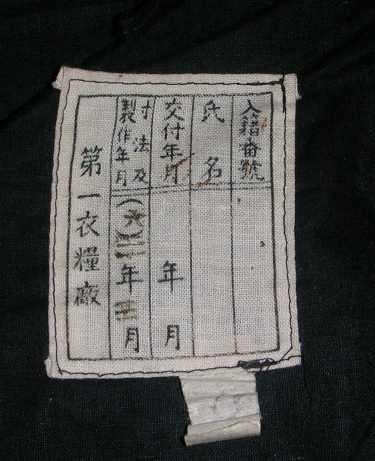 入籍番號
氏名
交付年月 年 月
寸法及
製作年月 年 月
第一衣糧廠